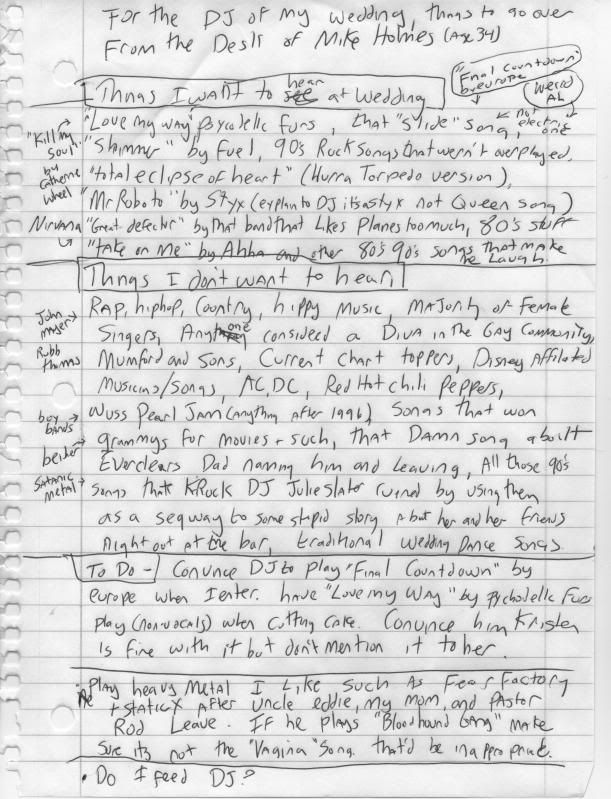 For the DJ of my wedding, things to go over
From the Desk of Mike Holmes (Age 34)
"Final Countdown"
by europe
Weird
AL
Things I want to hear at wedding
"Love my way" psycodelic furs, that "Slide" song, ← not electric one
"Kill my
soul"
by
Catherine
wheel
"Shimmer" by Fuel, 90's Rock songs that weren't overplayed.
"total eclipse of heart" (Hurra Torpedo version),
"Mr Roboto" by Styx (explain to DJ its a styx not Queen song)
Nirvana
"Great defector" by that band that Likes Planes too much, 80's stuff
"take on me" by Ahha and other 80's 90's songs that make
me Laugh.
Things I don't want to hear,
John
mayer
RAP, hiphop, Country, hippy Music, Majority of Female
Singers, Anyone considerd a Diva in the Gay Community,
Robb
thomas
Mumford and Sons, Current Chart toppers, Disney Affiliated
Musicins/Songs, AC,DC, Red Hot chili Peppers,
boy
bands
Wuss Pearl Jam (anything After 1996), Songs that won
beiber
grammys for movies + such, that Damn song about
Everclears Dad naming him and Leaving, All those 90's
Satanic
metal
songs that KRock DJ Julie slater ruined by using them
as a segway to some stupid story about her and her friends
night out at the bar, traditional Wedding Dance Songs.
To Do - Convince DJ to play "Final Countdown" by
europe when I enter. have "Love my Way" by Pychodellic Furs
play (non-vocals) when cutting cake. Convince him Kristen
Is fine with it but don't mention it to her.
• Play heavy Metal I Like Such As Fear Factory
+ static X After uncle eddie, my mom, and Pastor
Rod Leave. If he plays "Bloodhound Gang" make
Sure its not the "Vagina" Song. that'd be inappropriate.
• Do I feed DJ?